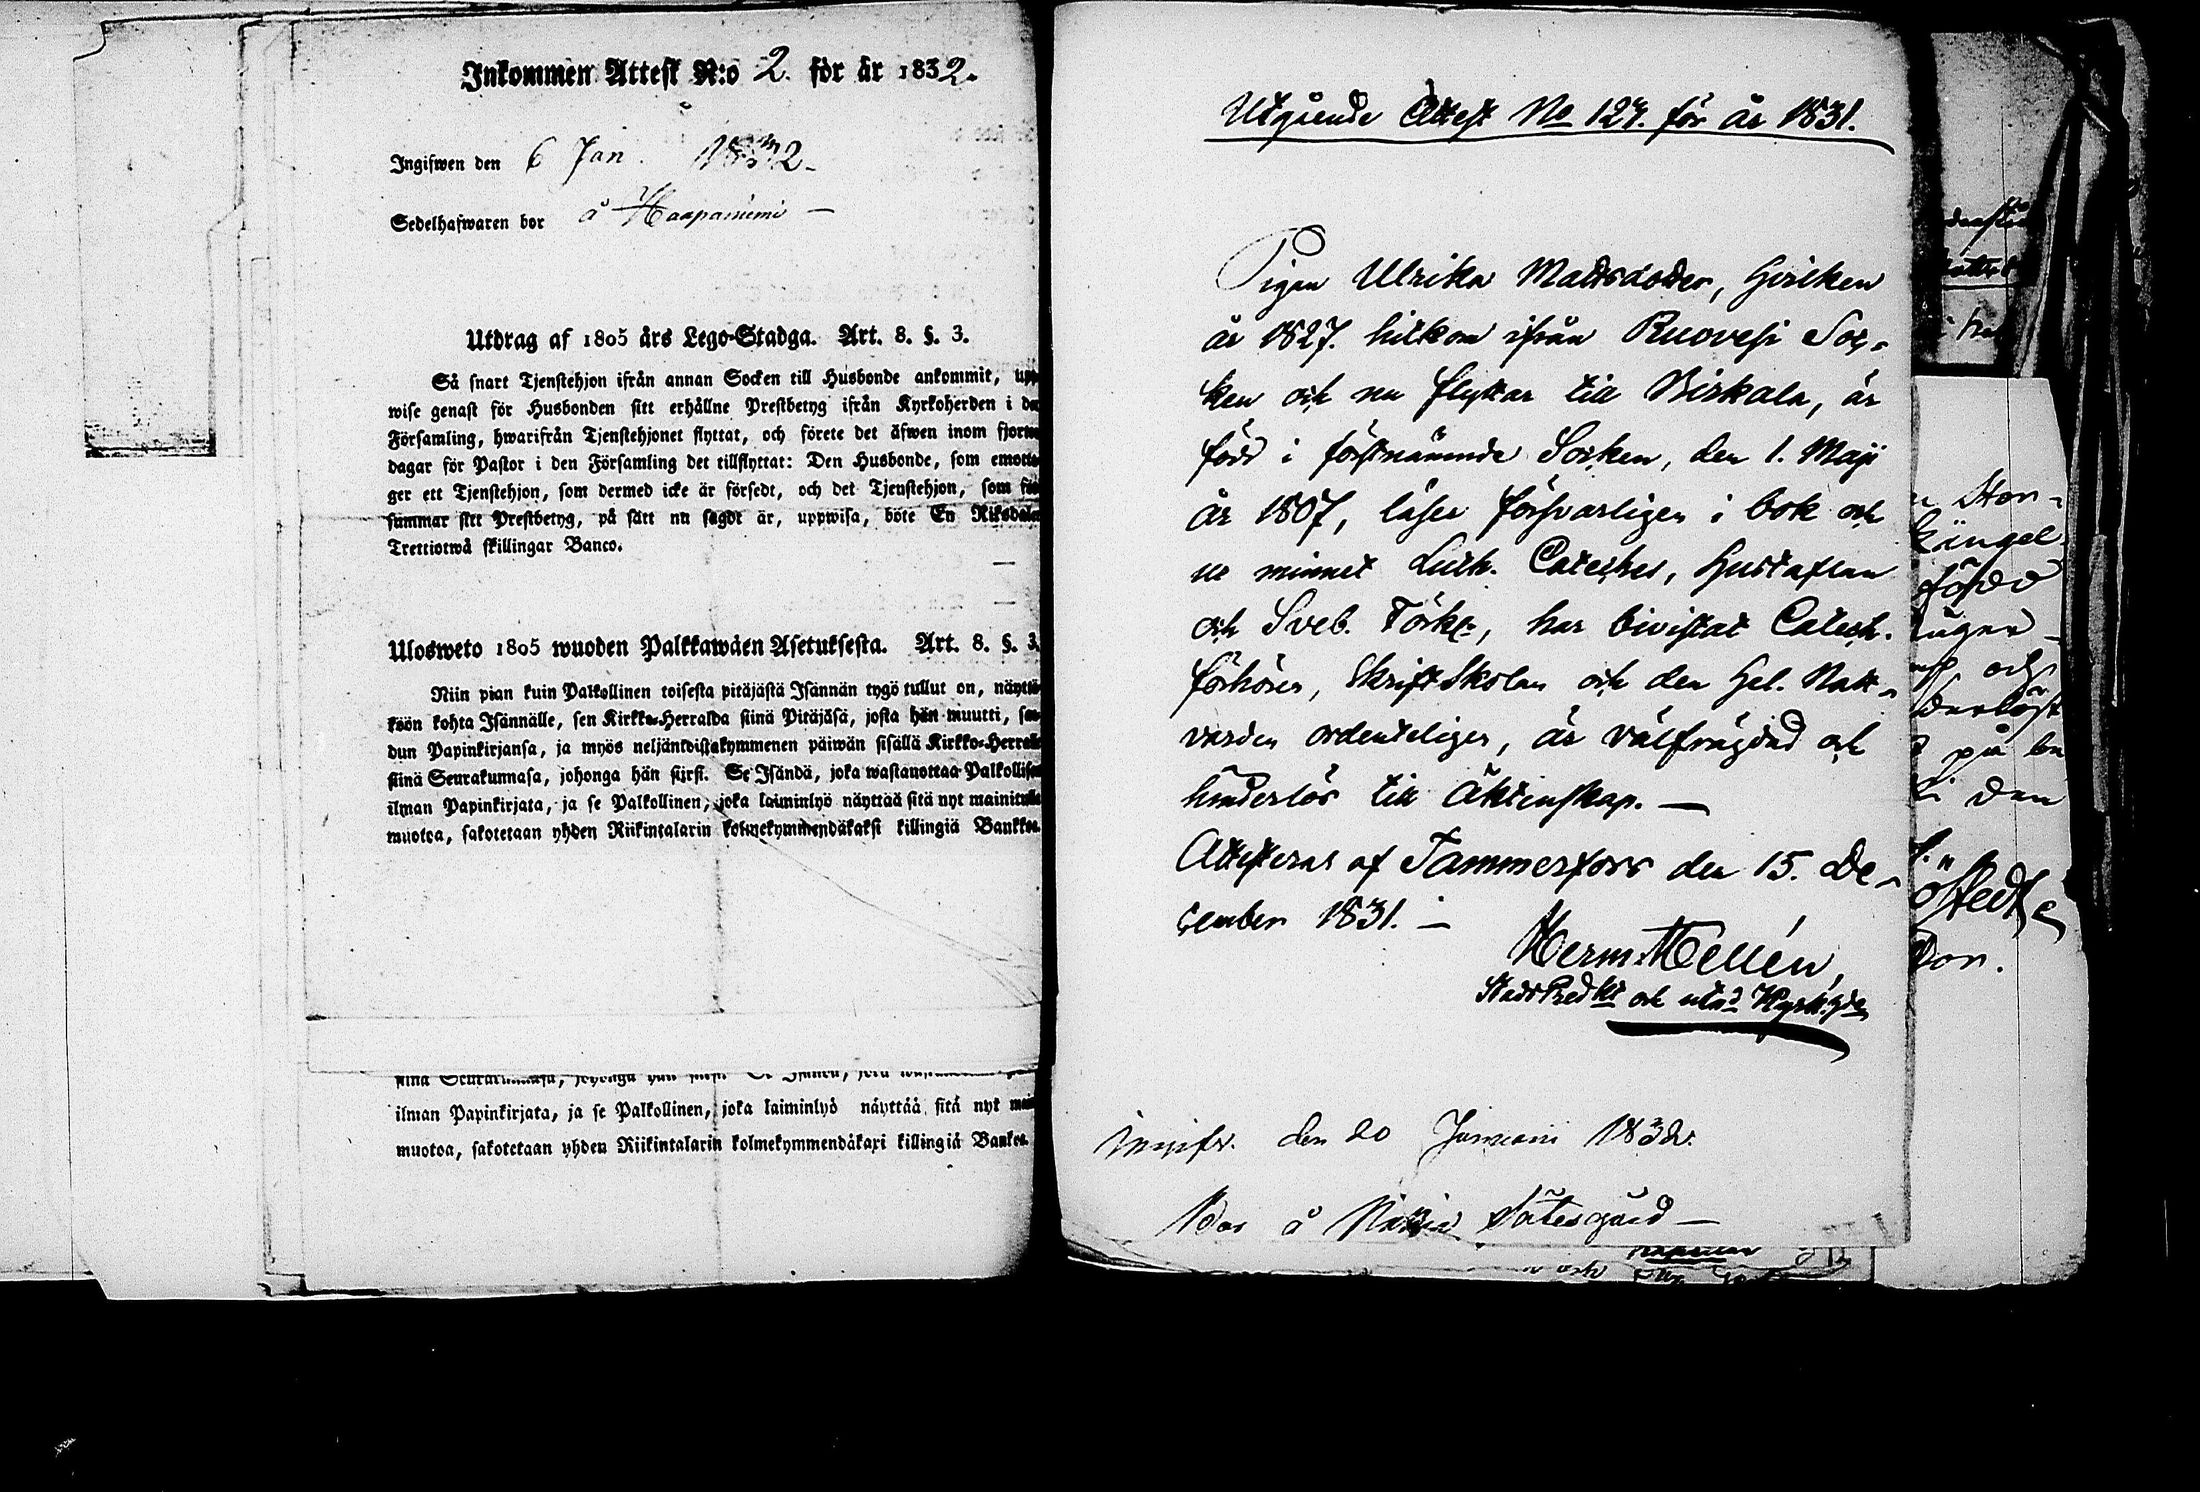 Inkommen Attest N:o 2. för år 1832.
Ingifwen den 6 Jan. 1832
Sedelhafwaren bor å Haapaniemi —
Utdrag af 1805 års Lego-Stadga. Art. 8. §. 3.
Så snart Tjenstehjon ifrån annan Socken till Husbonde ankommit, upp-
wise genast för Husbonden sitt erhållne Prestbetyg ifrån Kyrkoherden i den
Församling, hwarifrån Tjenstehjonet flyttat, och förete det äfwen inom fjorton
dagar för Pastor i den Församling det tillflyttat: Den Husbonde, som emotta-
ger ett Tjenstehjon, som dermed icke är försedt, och det Tjenstehjon, som för-
summar sitt Prestbetyg, på sätt nu sagdt är, uppwisa, böte En Riksdaler
Trettiotwå skillingar Banco.
Ulosweto 1805 wuoden Palkkawäen Asetuksesta. Art. 8. §. 3.
Niin pian kuin Palkollinen toisesta pitäjästä Isännän tygö tullut on, näyttä-
köön kohta Isännälle, sen Kirkko-Herralda siinä Pitäjäsä, josta hän muutti, saa-
dun Papinkirjansa, ja myös neljäntoistakymmenen päiwän sisällä Kirkko-Herralle
siinä Seurakunnasa, johonga hän siirsi. Se Isändä, joka wastanottaa Palkollisen
ilman Papinkirjata, ja se Palkollinen, joka laiminlyö näyttää sitä nyt mainitulla
muotoa, sakotetaan yhden Riikintalarin kolmekymmendäkaksi killingiä Bankkoa.
siinä Seurakunnasa, johonga hän siirsi. Se Isändä, joka
ilman Papinkirjata, ja se Palkollinen, joka laiminlyö näyttää sitä nyt
muotoa, sakotetaan yhden Riikintalarin kolmekymmendäkaxi killingiä Bankoa.
Utgående Attest No 127. för år 1831.
Pigan Ulrika Mattsdotter, hvilken
år 1827. hitkom ifrån Ruovesi Soc-
ken och nu flyttar till Birkala, är
född i förstnämnde Socken, den 1. Maji
år 1807, läser försvarligen i bok och
ur minnet Luth. Cateches, Hustaflan
och Sveb. Förkl., har bivistat Catech.
förhören, Skriftskolan och den Hel. Natt-
varden ordenteligen, är välfrägdad och
hinderlös till Äktenskap. —
Attesteras af Tammerfors den 15. De-
cember 1831. —
Herm. Hellén,
Stads Pred. och
den 20 Januarii 1832.
Bor å Sätesgård —
n Ston-
född
och
på
i den